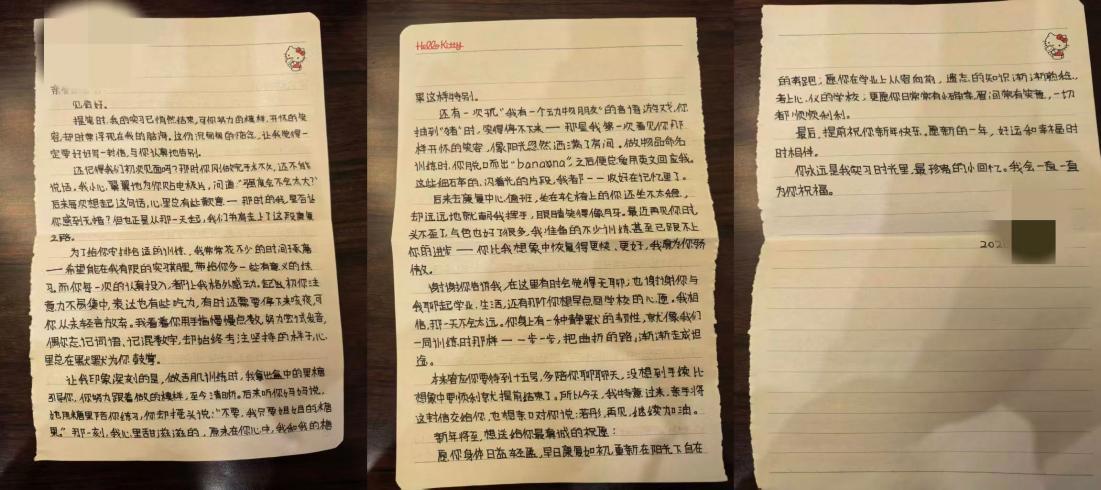 见字好。
提笔时,我的实习已悄然结束,可你努力的模样,开怀的笑
容,却时常浮现在我的脑海。这份沉甸甸的惦念,让我觉得一
定要好好写一封信,与你认真地告别。
还记得我们初次见面吗?那时你刚做完手术不久,还不能
说话,我小心翼翼地为你贴电极片,问道:“强度会不会太大?”
后来每次想起这句话,心里总有些歉意——那时的我,是否让
你感到无措?但也正是从那一天起,我们共同走上了这段康复
之路。
为了给你安排合适的训练,我常常花不少的时间琢磨
——希望能在我有限的实习期里,带给你多一些有意义的练
习。而你每一次的认真投入,都让我格外感动。起初,你注
意力不易集中,表达也有些吃力,有时还需要停下来咳嗽,可
你从未轻言放弃。我看着你用手指慢慢点数,努力尝试发音,
偶尔忘记词语、记混数字,却始终专注坚持的样子,心
里总在默默为你鼓掌。
让我印象深刻的是,做舌肌训练时,我拿出盒中的果糖
引导你,你努力跟着做的模样,至今清晰。后来听你妈妈说,
她用糖果陪你练习,你却摇头说:“不要,我只要姐姐的糖
果。”那一刻,我心里甜滋滋的,原来在你心中,我和我的糖
Hello Kitty
果这样特别。
还有一次玩“我有一个动物朋友”的音悟游戏,你
抽到“猪”时,笑得停不下来——那是我第一次看见你那
样开怀的笑容,像阳光忽然洒满了房间。做物品命名
训练时,你脱口而出“banana”,之后便总爱用英文回复我。
这些细碎的、闪着光的片段,我都一一收好在记忆里了。
后来去康复中心值班,坐在轮椅上的你还坐不太稳,
却远远地就朝我挥手,眼睛笑得像月牙。最近再见你时,
头不歪了,气色也好了很多,我准备的不少训练甚至已跟不上
你的进步——你比我想象中恢复得更快、更好,我真为你骄
傲。
谢谢你告诉我,在这里有时会觉得无聊;也谢谢你与
我聊起学业、生活,还有那个你想早点回学校的心愿。我相
信,那一天不会太远。你身上有一种静默的韧性,就像我们
一同训练时那样——一步一步,把曲折的路,渐渐走成坦
途。
本来答应你要待到十五号,多陪你聊聊天,没想到手续比
想象中要顺利就提前结束了。所以今天,我特意过来,亲手将
这封信交给你,也想亲口对你说:若彤,再见,继续加油。
新年将至,想送给你最真诚的祝愿:
愿你身体日益轻盈,早日康复如初,重新在阳光下自在
的奔跑;愿你在学业上从容向前,遗忘的知识渐渐熟稔,
考上心仪的学校;更愿你日常常有小确幸,眉间常有笑意,一切
都顺顺利利。
最后,提前祝你新年快乐。愿新的一年,好运和幸福时
时相伴。
你永远是我实习时光里,最珍贵的小回忆。我会一直一直
为你祝福。
202